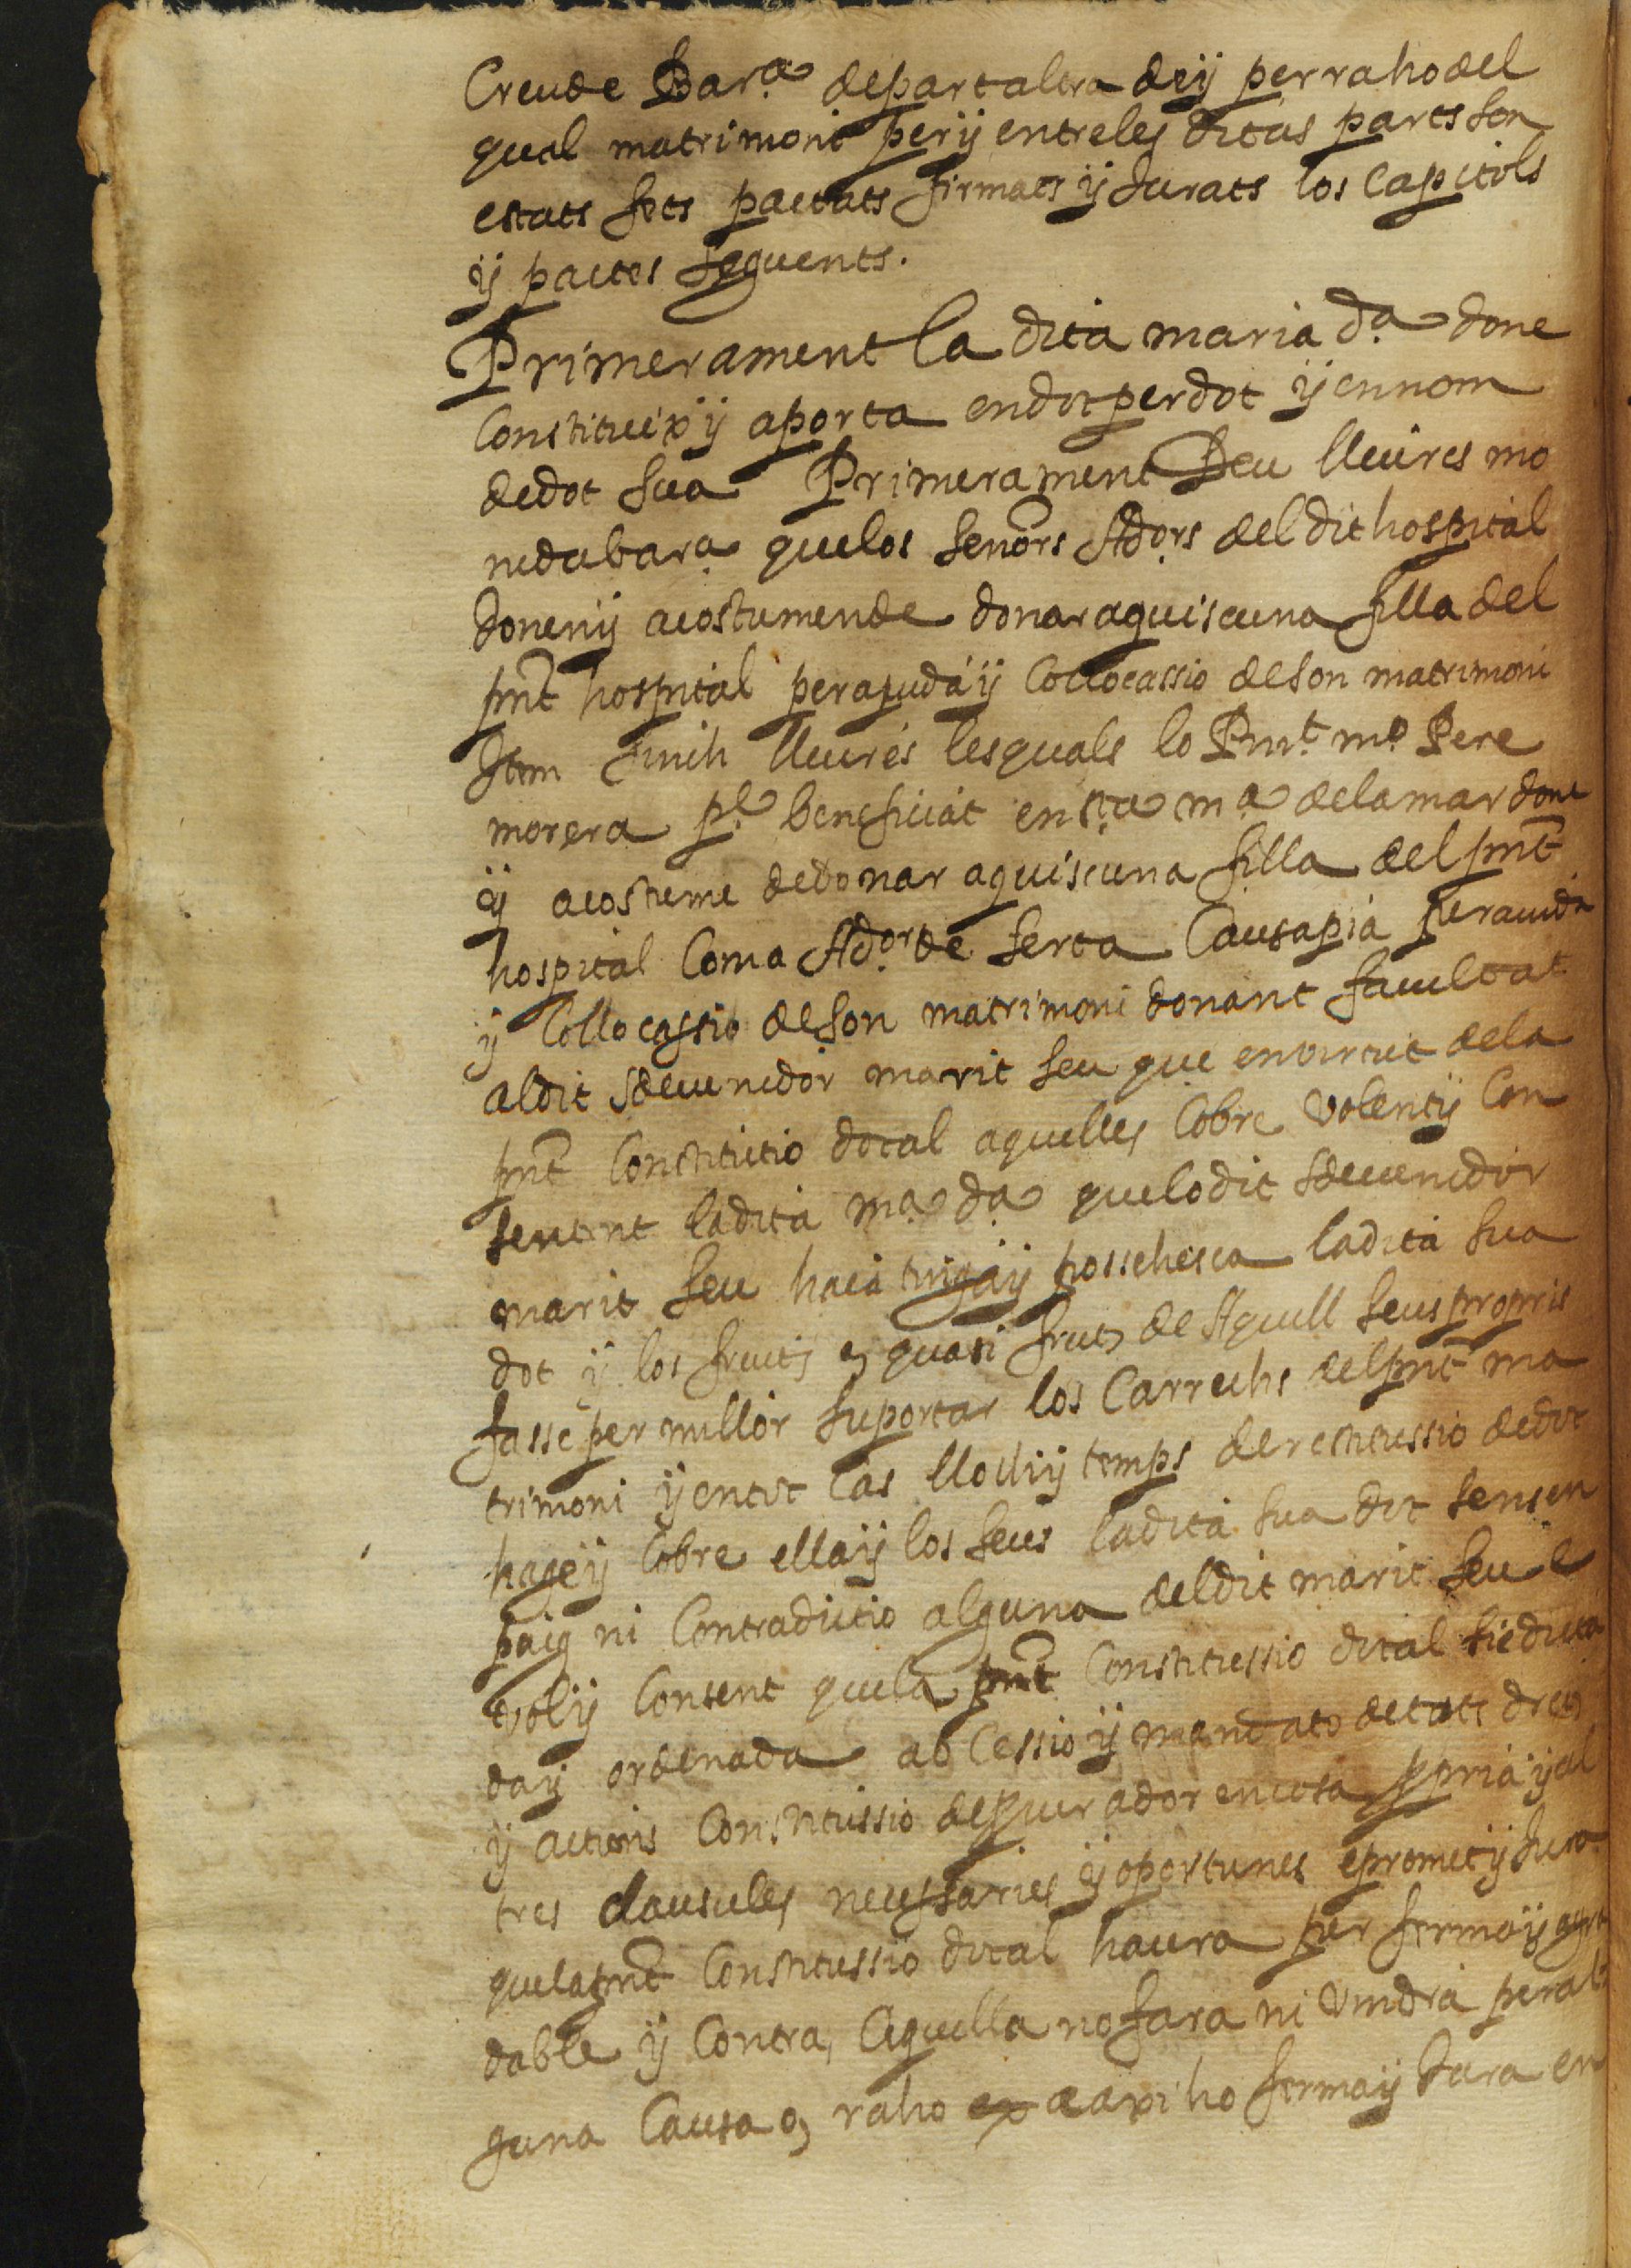 Creu de Bar.ª de part altra de ij per raho del
qual matrimoni per ij entre les ditas parts son
estats fets pactats firmats ij Jurats los Capitols
ij pactes seguents.
Primerament la dita maria d.ª done
Constitueix ij aporta en dot per dot ij en nom
de dot sua Primerament Deu lliures mo
neda bar.ª que los Senõrs Ad.ors del dit hospital
donen ij acostumen de donar a quiscuna filla del
pnt̃ hospital per ajuda ij Collocassio de son matrimoni
Item Sinch lliures lesquals lo Pnt.t m.o Pere
morera p.e beneficiat en s.ta m.ª de la mar done
ij acostume de donar a quiscuna filla del pnt̃
hospital Com a Ad.or de serta Causa pia per aiuda
ij Collocassio de son matrimoni donant facultat
al dit sdevenidor marit seu que en virtut de la
pnt̃ Constitutio dotal aquelles Cobre volent ij Con
sentint la dita m.ª d.ª que lo dit sdevenidor
marit seu haia tinga ij possehesca la dita sua
dot ij los fruits o quasi fruits de Aquell seus propris
fasse per millor suportar los Carrechs del pnt̃ ma
trimoni ij en tot Cas lloch ij temps de restitussio de dot
hage ij Cobre ella ij los seus la dita sua dot sens en
paig ni Contradictio alguna del dit marit seu e
vol ij Consent que la pnt̃ Constitussio dotal sie dicta
da ij ordenada ab Cessio ij mandato de tots drets
ij actions Constitussio de ꝓcurador en cosa ꝓpria ij al
tres clausules necessaries ij oportunes e promet ij Jura
que la pnt̃ Constitussio dotal haura per ferma ij agra
dable ij Contra Aquella no fara ni vindra per al
guna Causa o raho e axi ho ferma ij Jura en